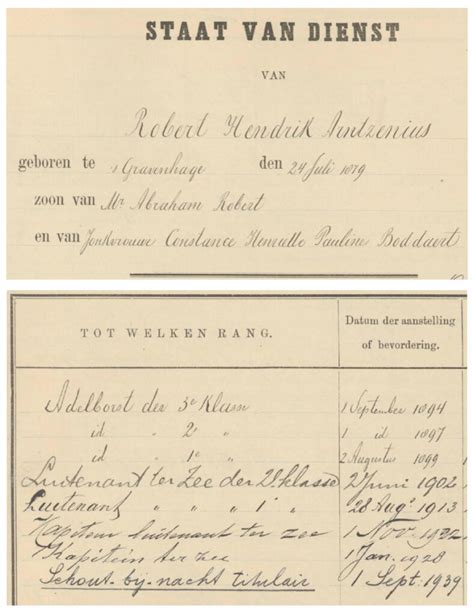 STAAT VAN DIENST
VAN
Robert Hendrik Arntzenius
geboren te 's Gravenhage den 24 Juli 1879
zoon van Mr. Abraham Robert
en van Jonkvrouw Constance Henriette Pauline Boddaert
TOT WELKEN RANG. Datum der aanstelling of bevordering.
Adelborst der 3e Klasse 1 September 1894
id " 2e " 1 id 1897
id " 1e " 2 Augustus 1899
Luitenant ter Zee der 2e klasse 2 Juni 1902
Luitenant " " " 1e " 28 Augs 1913
Kapitein luitenant ter zee 1 Nov. 1922
Kapitein ter zee 1 Jan. 1928
Schout-bij-nacht titulair 1 Sept. 1939